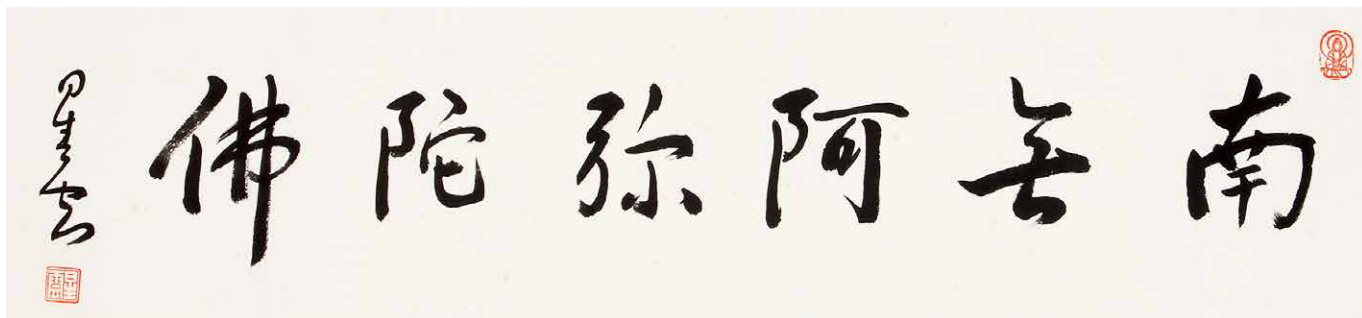 南無阿弥陀佛
星雲